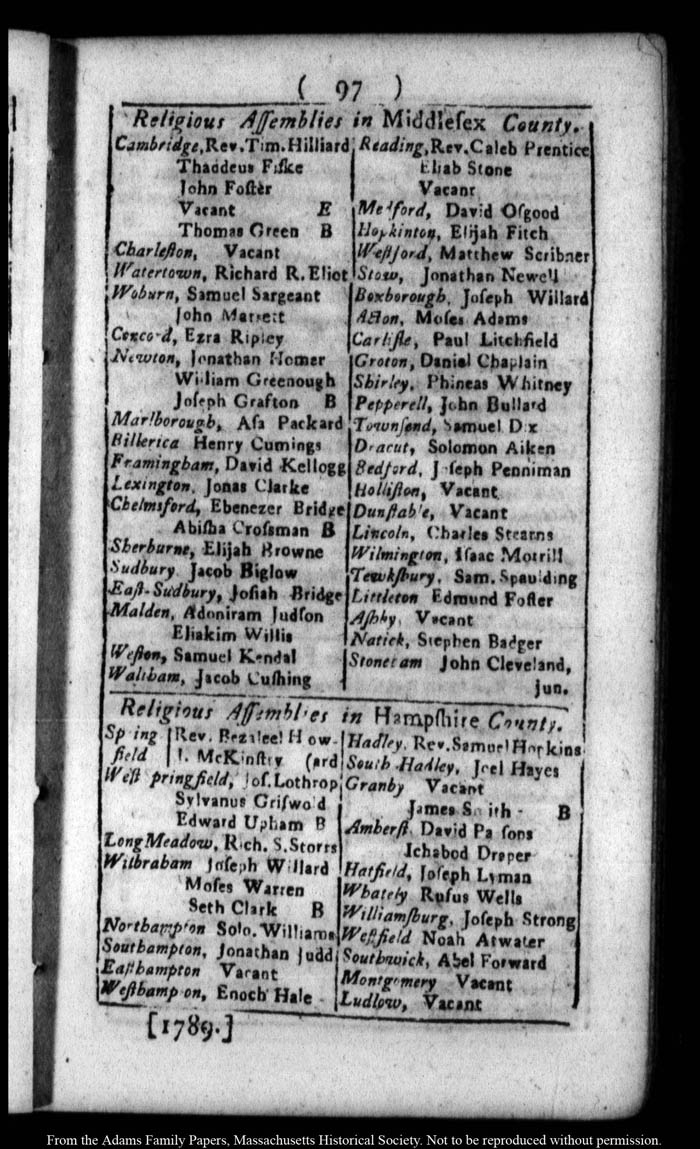 ( 97 )
Religious Aſſemblies in Middleſex County.
Cambridge, Rev. Tim. Hilliard
Thaddeus Fiſke
John Foſter
Vacant E
Thomas Green B
Charleſton, Vacant
Watertown, Richard R. Eliot
Woburn, Samuel Sargeant
John Marrett
Concord, Ezra Ripley
Newton, Jonathan Homer
William Greenough
Joſeph Grafton B
Marlborough, Aſa Packard
Billerica Henry Cumings
Framingham, David Kellogg
Lexington, Jonas Clarke
Chelmsford, Ebenezer Bridge
Abiſha Croſsman B
Sherburne, Elijah Browne
Sudbury Jacob Biglow
Eaſt-Sudbury, Joſiah Bridge
Malden, Adoniram Judſon
Eliakim Willis
Weſton, Samuel Kendal
Waltham, Jacob Cuſhing
Reading, Rev. Caleb Prentice
Eliab Stone
Vacant
Medford, David Oſgood
Hopkinton, Elijah Fitch
Weſtford, Matthew Scribner
Stow, Jonathan Newell
Boxborough, Joſeph Willard
Acton, Moſes Adams
Carliſle, Paul Litchfield
Groton, Daniel Chaplain
Shirley, Phineas Whitney
Pepperell, John Bullard
Townſend, Samuel Dix
Dracut, Solomon Aiken
Bedford, Joſeph Penniman
Holliſton, Vacant
Dunſtable, Vacant
Lincoln, Charles Stearns
Wilmington, Iſaac Morrill
Tewkſbury, Sam. Spaulding
Littleton Edmund Foſter
Aſhby, Vacant
Natick, Stephen Badger
Stoneham John Cleveland,
jun.
Religious Aſſemblies in Hampſhire County.
Spring Rev. Bezaleel How-
field J. McKinſtry (ard
Weſt Springfield, Joſ. Lothrop
Sylvanus Griſwold
Edward Upham B
Long Meadow, Rich. S. Storrs
Wilbraham Joſeph Willard
Moſes Warren
Seth Clark B
Northampton Solo. Williams
Southampton, Jonathan Judd
Eaſthampton Vacant
Weſthampton, Enoch Hale
Hadley, Rev. Samuel Hopkins
South Hadley, Joel Hayes
Granby Vacant
James Smith B
Amherſt, David Parſons
Ichabod Draper
Hatfield, Joſeph Lyman
Whately Rufus Wells
Williamſburg, Joſeph Strong
Weſtfield Noah Atwater
Southwick, Abel Forward
Montgomery Vacant
Ludlow, Vacant
[1789.]
From the Adams Family Papers, Massachusetts Historical Society. Not to be reproduced without permission.